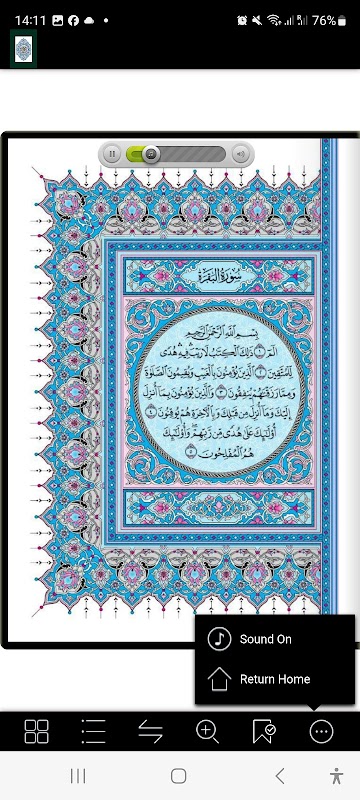 14:11
76%
سُورَةُ البَقَرَةِ
بِسْمِ اللَّهِ الرَّحْمَٰنِ الرَّحِيمِ
الٓمٓ ١ ذَٰلِكَ الْكِتَابُ لَا رَيْبَ ۛ فِيهِ ۛ هُدًى
لِّلْمُتَّقِينَ ٢ الَّذِينَ يُؤْمِنُونَ بِالْغَيْبِ وَيُقِيمُونَ الصَّلَوٰةَ
وَمِمَّا رَزَقْنَٰهُمْ يُنفِقُونَ ٣ وَالَّذِينَ يُؤْمِنُونَ بِمَا أُنزِلَ
إِلَيْكَ وَمَا أُنزِلَ مِن قَبْلِكَ وَبِالْآخِرَةِ هُمْ يُوقِنُونَ ٤
أُولَٰئِكَ عَلَىٰ هُدًى مِّن رَّبِّهِمْ ۖ وَأُولَٰئِكَ
هُمُ الْمُفْلِحُونَ ٥
Sound On
Return Home